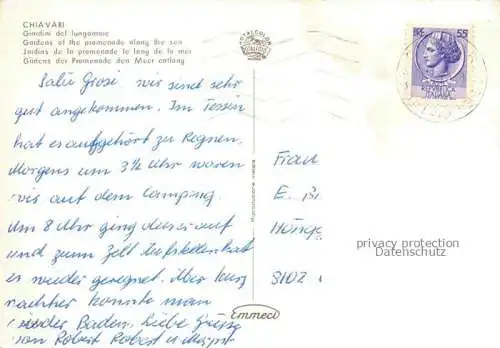 CHIAVARI
Giardini del lungomare
Gardens of the promenade along the sea
Jardins de la promenade le long de la mer
Gärten der Promenade den Meer entlang
TOTALCOLOR
LIRE 55
Salü Grosi wir sind sehr
gut angekommen. Im Tessin
hat es aufgehört zu Regnen,
Morgens um 3½ Uhr waren
wir auf dem Camping.
Um 8 Uhr ging dieser auf
und zum Zelt hat
es wieder geregnet. Aber kurz
nachher konnte man
wieder Baden, Liebe Grüsse
von Robert Robert u
Frau
E. Bi
Höngg
8102
privacy protection
Datenschutz
Emmeci